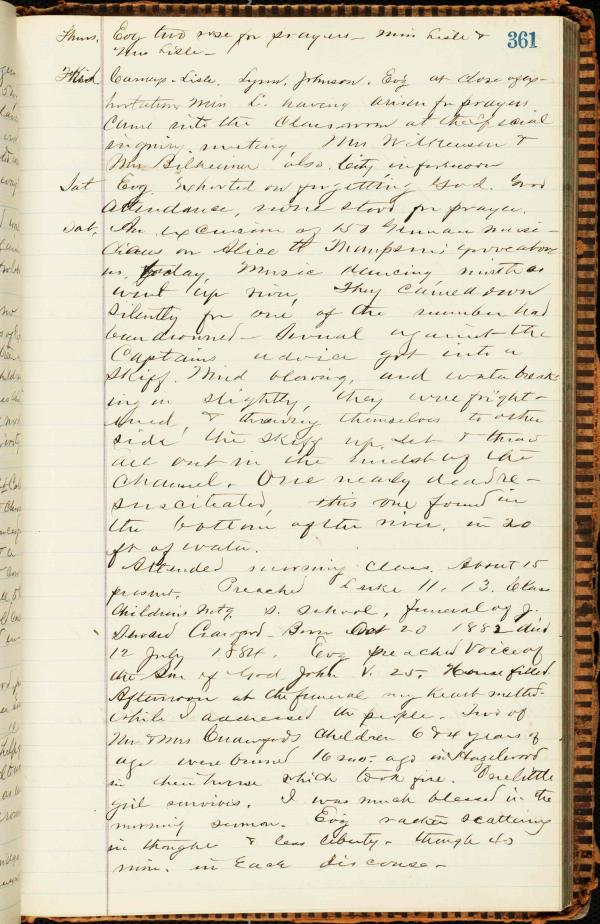 361
Thurs. Evg two rose for prayers - Miss Lisle &
Mrs Lisle -
Frid Camp - Lisle, Lynn, Johnson. Evg at close of ex-
hortation Mrs L. having arisen for prayers
came into the class room at the special
inquiry meeting. Mrs. Wilkenson &
Mrs Bilheimer also. City in forenoon
Sat Evg. Exhorted on forgetting God. Good
attendance, none stood for prayer.
Sat. An excursion of 150 German musi-
cians on Alice H Thompson;
us, today. Music dancing mirth as
went up river, They came down
silently for one of the number had
been drowned - Several against the
Captains advice got into a
skiff. Wind blowing, and water break-
ing in slightly, they were fright-
ened, & throwing themselves to other
side the skiff up set & threw
all out in the midst of the
channel. One nearly dead re-
suscitated, this one found in
the bottom of the river, in 20
ft of water.
Attended morning class. About 15
present. Preached Luke 11, 13. Class
Childrens Mtg. S. School, Funeral of J.
Seward Crawford - Born Oct 20 1882 died
12 July 1884. Evg preached Voice of
the Son of God John V. 25. House filled.
Afternoon at the funeral my heart melted
while I addressed the people. Two of
Mr & Mrs Crawfords children 6 & 4 years of
age were burned 16 mos. ago in Hazelwood
in their house which took fire. One little
girl survives. I was much blessed in the
morning sermon. Evg rather scattering
in thought & less liberty - though 40
min. in each discourse -